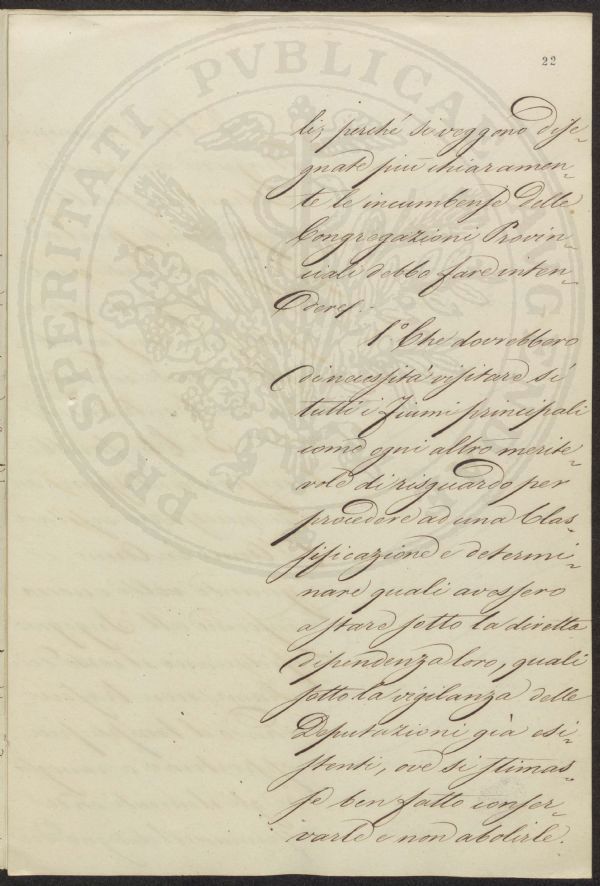 22
li, perché si veggono dise-
gnate più chiaramen-
te le incumbense delle
Congregazioni Provin-
ciali debbo fare inten-
dere.
1.° Che dovrebbero
di necessità visitare sì
tutti i fiumi principali
come ogni altro merite-
vole di risguardo per
procedere ad una Clas-
sificazione e determi-
nare quali avessero
a stare sotto la diretta
dipendenza loro, quali
sotto la vigilanza delle
Deputazioni già esi-
stenti, ove si stimas-
se ben fatto conser-
varle e non abolirle.
PROSPERITATI PVBLICAE